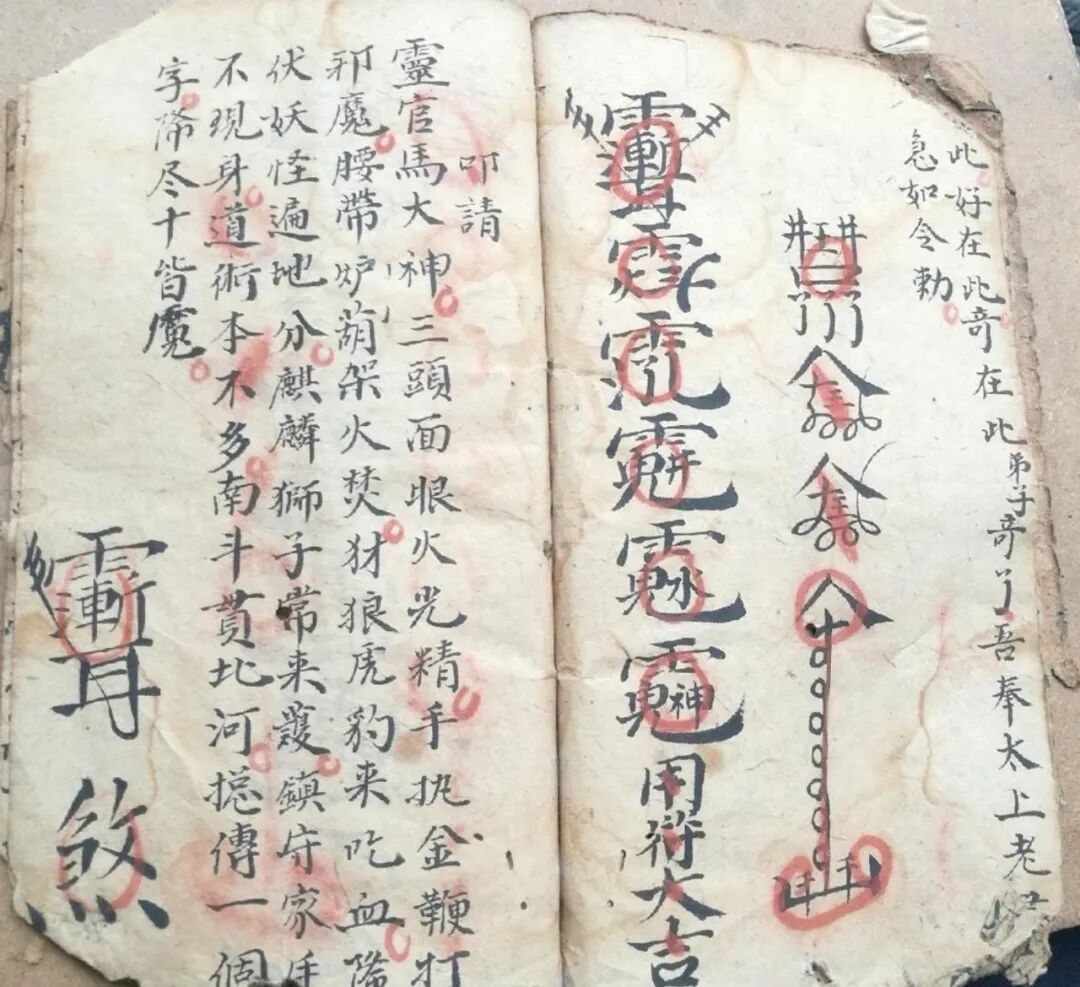 此好在此奇在此弟子奇了吾奉太上老
急如令勅
用符大吉
叩請
靈官馬大神三頭面眼火光精手执金鞭打
邪魔腰帶炉葫架火焚犲狼虎豹来吃血降
伏妖怪遍地分麒麟獅子常来護鎮守家
不現身道術本不多南斗貫北河摠傳一個
字降尽十皆魔
煞